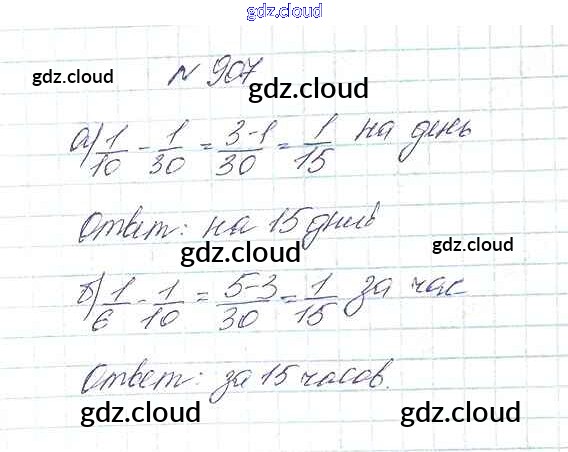 gdz.cloud
N 907
gdz.cloud gdz.cloud
а) 1/10 - 1/30 = 3-1/30 = 1/15 на день
Ответ: на 15 дней
gdz.cloud gdz.cloud
б) 1/6 - 1/10 = 5-3/30 = 1/15 за час
Ответ: за 15 часов.
gdz.cloud gdz.cloud